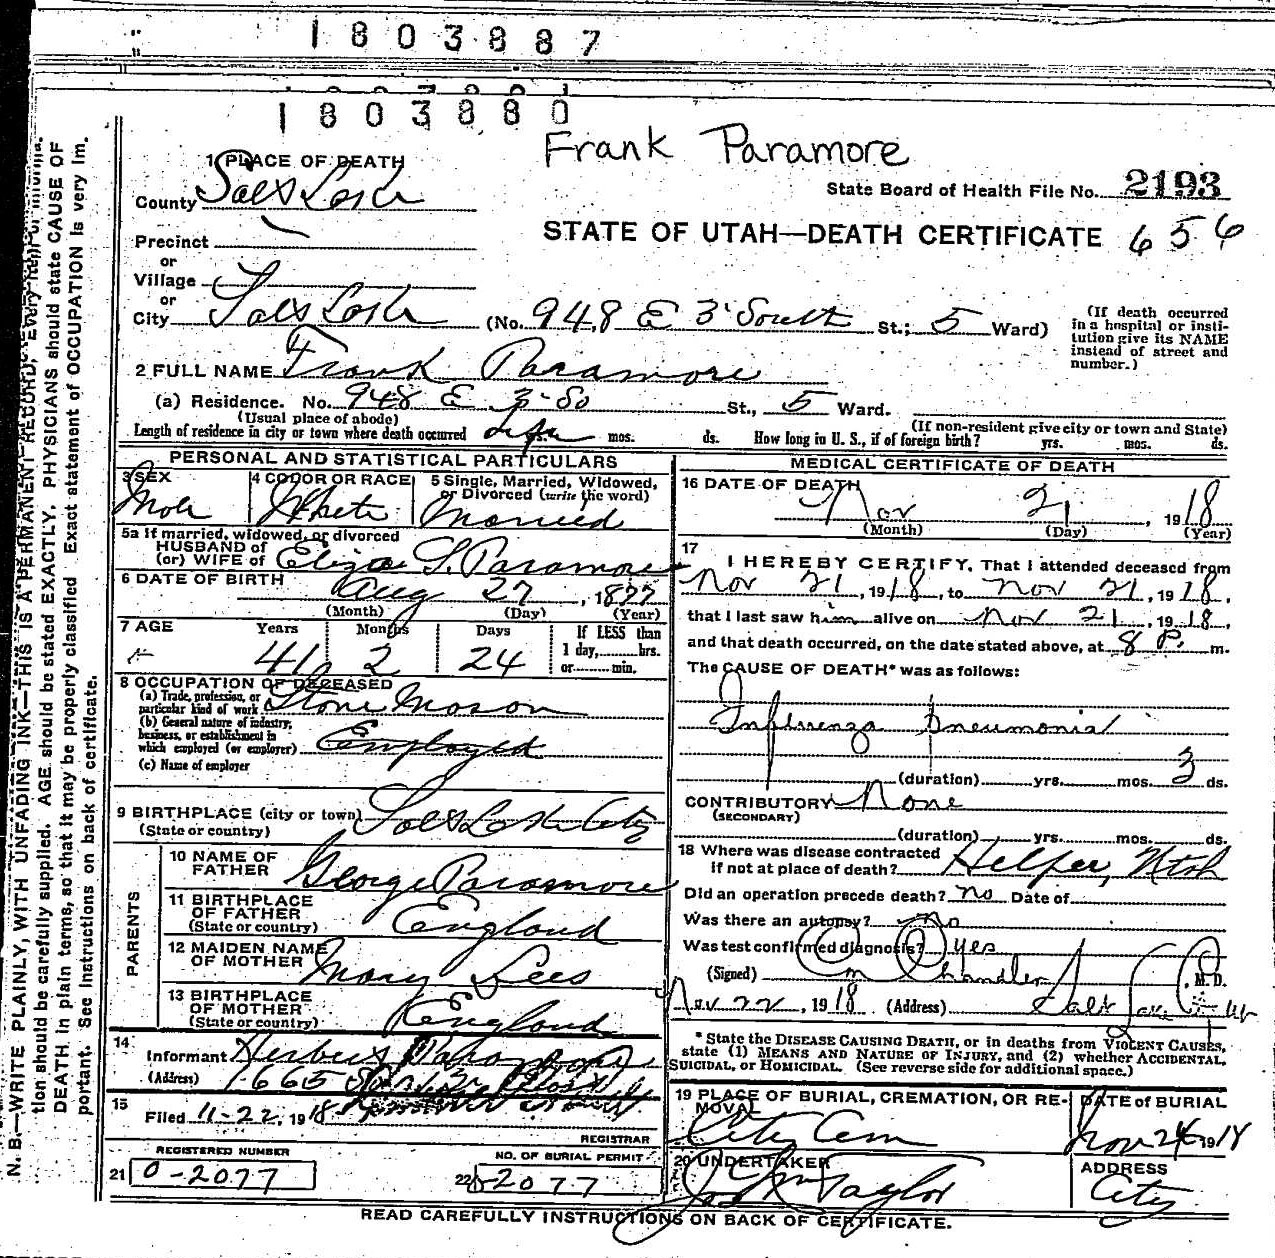 1803887
1803880
Frank Paramore
1 PLACE OF DEATH
State Board of Health File No. 2193
County Salt Lake
STATE OF UTAH—DEATH CERTIFICATE 656
Precinct
or
Village
or
City Salt Lake (No. 948 E 3 South St.; 5 Ward)
(If death occurred in a hospital or insti-
tution give its NAME
instead of street and
number.)
2 FULL NAME Frank Paramore
(a) Residence. No. 948 E 3-So St., 5 Ward.
(Usual place of abode)
(If non-resident give city or town and State)
Length of residence in city or town where death occurred Life yrs. mos. ds. How long in U. S., if of foreign birth? yrs. mos. ds.
PERSONAL AND STATISTICAL PARTICULARS
3 SEX Male
4 COLOR OR RACE White
5 Single, Married, Widowed,
or Divorced (write the word)
Married
5a If married, widowed, or divorced
HUSBAND of
(or) WIFE of Eliza S. Paramore
6 DATE OF BIRTH Aug 27, 1877
(Month) (Day) (Year)
7 AGE Years Months Days If LESS than
41 2 24 1 day, hrs.
or min.
8 OCCUPATION OF DECEASED
(a) Trade, profession, or
particular kind of work Stone Mason
(b) General nature of industry,
business, or establishment in
which employed (or employer) Employed
(c) Name of employer
9 BIRTHPLACE (city or town) Salt Lake City
(State or country)
PARENTS
10 NAME OF
FATHER George Paramore
11 BIRTHPLACE
OF FATHER England
(State or country)
12 MAIDEN NAME
OF MOTHER Mary Lees
13 BIRTHPLACE
OF MOTHER England
(State or country)
14
Informant Paramore
(Address) 665
15
Filed 11-22, 1918
REGISTRAR
REGISTERED NUMBER
21 0-2077
NO. OF BURIAL PERMIT
22 0-2077
MEDICAL CERTIFICATE OF DEATH
16 DATE OF DEATH
Nov 21, 1918
(Month) (Day) (Year)
17
I HEREBY CERTIFY, That I attended deceased from
Nov 21, 1918, to Nov 21, 1918,
that I last saw him alive on Nov 21, 1918,
and that death occurred, on the date stated above, at 8 P. m.
The CAUSE OF DEATH* was as follows:
Influenza Pneumonia
(duration) yrs. mos. 3 ds.
CONTRIBUTORY None
(SECONDARY)
(duration) yrs. mos. ds.
18 Where was disease contracted
if not at place of death? Helper, Utah
Did an operation precede death? No Date of
Was there an autopsy? No
Was test confirmed diagnosis? yes
(Signed) Chandler, M.D.
Nov 22, 1918 (Address) Salt Lake City
* State the DISEASE CAUSING DEATH, or in deaths from VIOLENT CAUSES,
state (1) MEANS AND NATURE OF INJURY, and (2) whether ACCIDENTAL,
SUICIDAL, or HOMICIDAL. (See reverse side for additional space.)
19 PLACE OF BURIAL, CREMATION, OR RE-
MOVAL
City Cem
DATE of BURIAL
Nov 24 1918
20 UNDERTAKER
Taylor
ADDRESS
City
READ CAREFULLY INSTRUCTIONS ON BACK OF CERTIFICATE.
N. B.—WRITE PLAINLY, WITH UNFADING INK—THIS IS A PERMANENT RECORD. Every item of informa-
tion should be carefully supplied. AGE should be stated EXACTLY. PHYSICIANS should state CAUSE OF
DEATH in plain terms, so that it may be properly classified Exact statement of OCCUPATION is very im-
portant. See instructions on back of certificate.